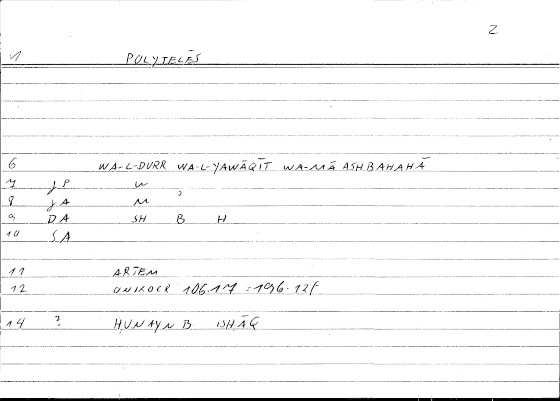 2
1 POLYTELĒS
6 WA-L-DURR WA-L-YAWĀQĪT WA-MĀ ASHBAHAHĀ
7 JP W
8 JA M ʾ
9 DA SH B H
10 SA
11 ARTEM
12 ONIROCR 106.17 = 196.12f
14 ? HUNAYN B ISHĀQ